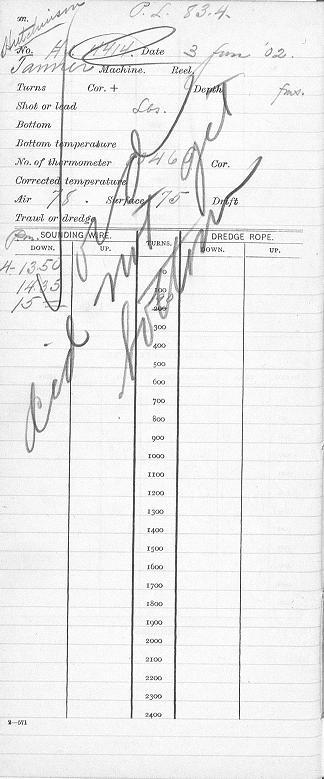 P. L. 83.4.
Hutchinson
No. H. 4414. Date 3 Jun '02.
Tanner Machine. Reel,
Turns Cor. + Depth fms.
Shot or lead Lbs.
Bottom
Bottom temperature
No. of thermometer Cor.
Corrected temperature
Air 78. Surface 75 Drift
Trawl or dredge
P.m. SOUNDING WIRE. TURNS. DREDGE ROPE.
DOWN. UP. DOWN. UP.
4-1350
1435
15
did not get
bottom
200
300
400
500
600
700
800
900
1000
1100
1200
1300
1400
1500
1600
1700
1800
1900
2000
2100
2200
2300
2400
2—571